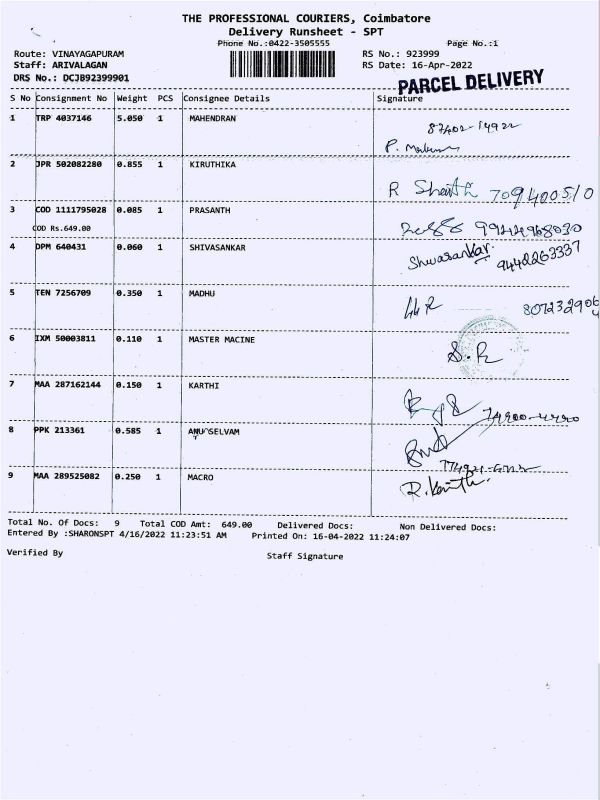 THE PROFESSIONAL COURIERS, Coimbatore
Delivery Runsheet - SPT
Phone No.:0422-3505555 Page No.:1
Route: VINAYAGAPURAM RS No.: 923999
Staff: ARIVALAGAN RS Date: 16-Apr-2022
DRS No.: DCJB92399901 PARCEL DELIVERY
S No Consignment No Weight PCS Consignee Details Signature
1 TRP 4037146 5.050 1 MAHENDRAN
P.
2 JPR 502082280 0.855 1 KIRUTHIKA
R
3 COD 1111795028 0.085 1 PRASANTH
COD Rs.649.00
4 DPM 640431 0.060 1 SHIVASANKAR Shivasankar. 9442263337
5 TEN 7256709 0.350 1 MADHU
6 IXM 50003811 0.110 1 MASTER MACINE
S.R
7 MAA 287162144 0.150 1 KARTHI
8 PPK 213361 0.585 1 SELVAM
9 MAA 289525082 0.250 1 MACRO
Total No. Of Docs: 9 Total COD Amt: 649.00 Delivered Docs: Non Delivered Docs:
Entered By :SHARONSPT 4/16/2022 11:23:51 AM Printed On: 16-04-2022 11:24:07
Verified By Staff Signature